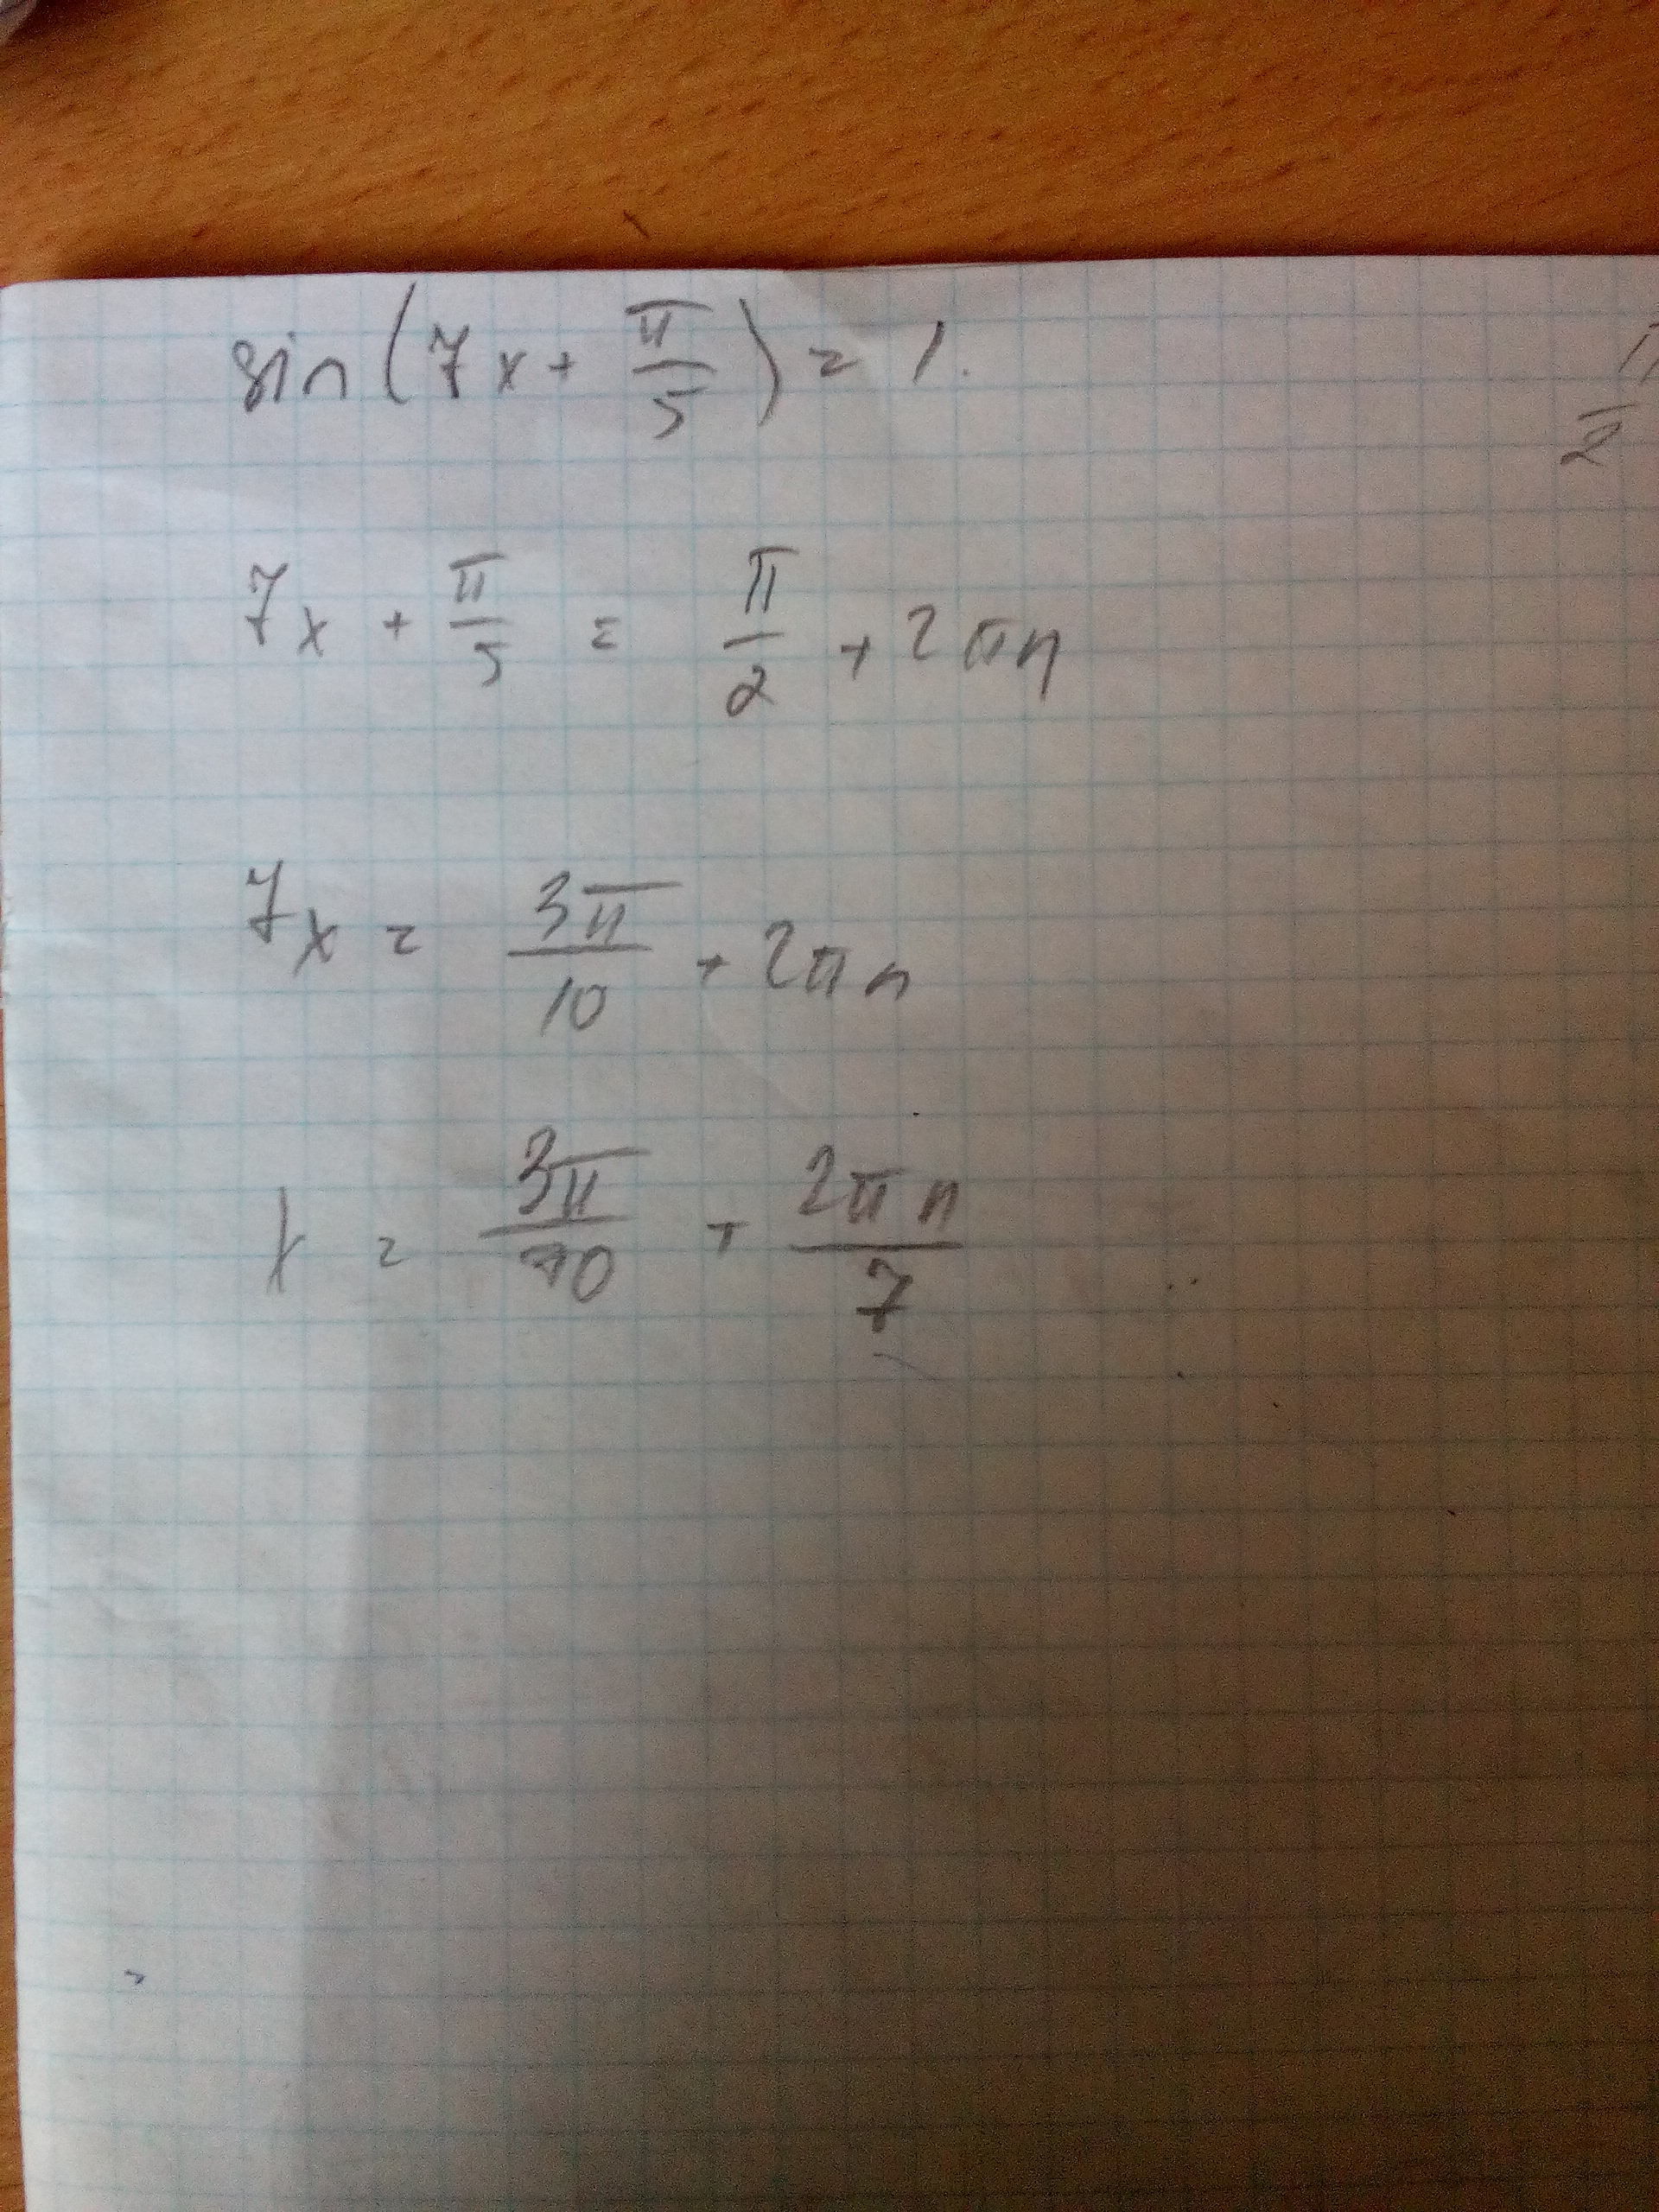 sin(7x + π/5) = 1.
π/2
7x + π/5 = π/2 + 2πn
7x = 3π/10 + 2πn
x = 3π/70 + 2πn/7